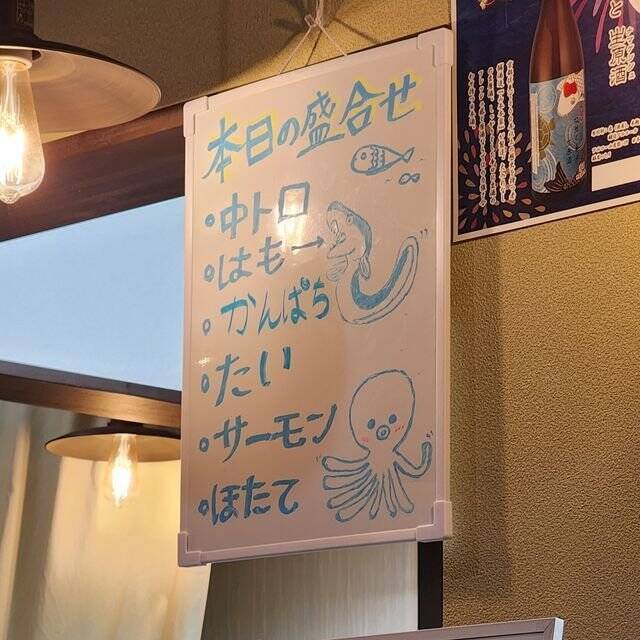 本日の盛合せ
中トロ
はも→
かんぱち
たい
サーモン
ほたて
と 生原酒